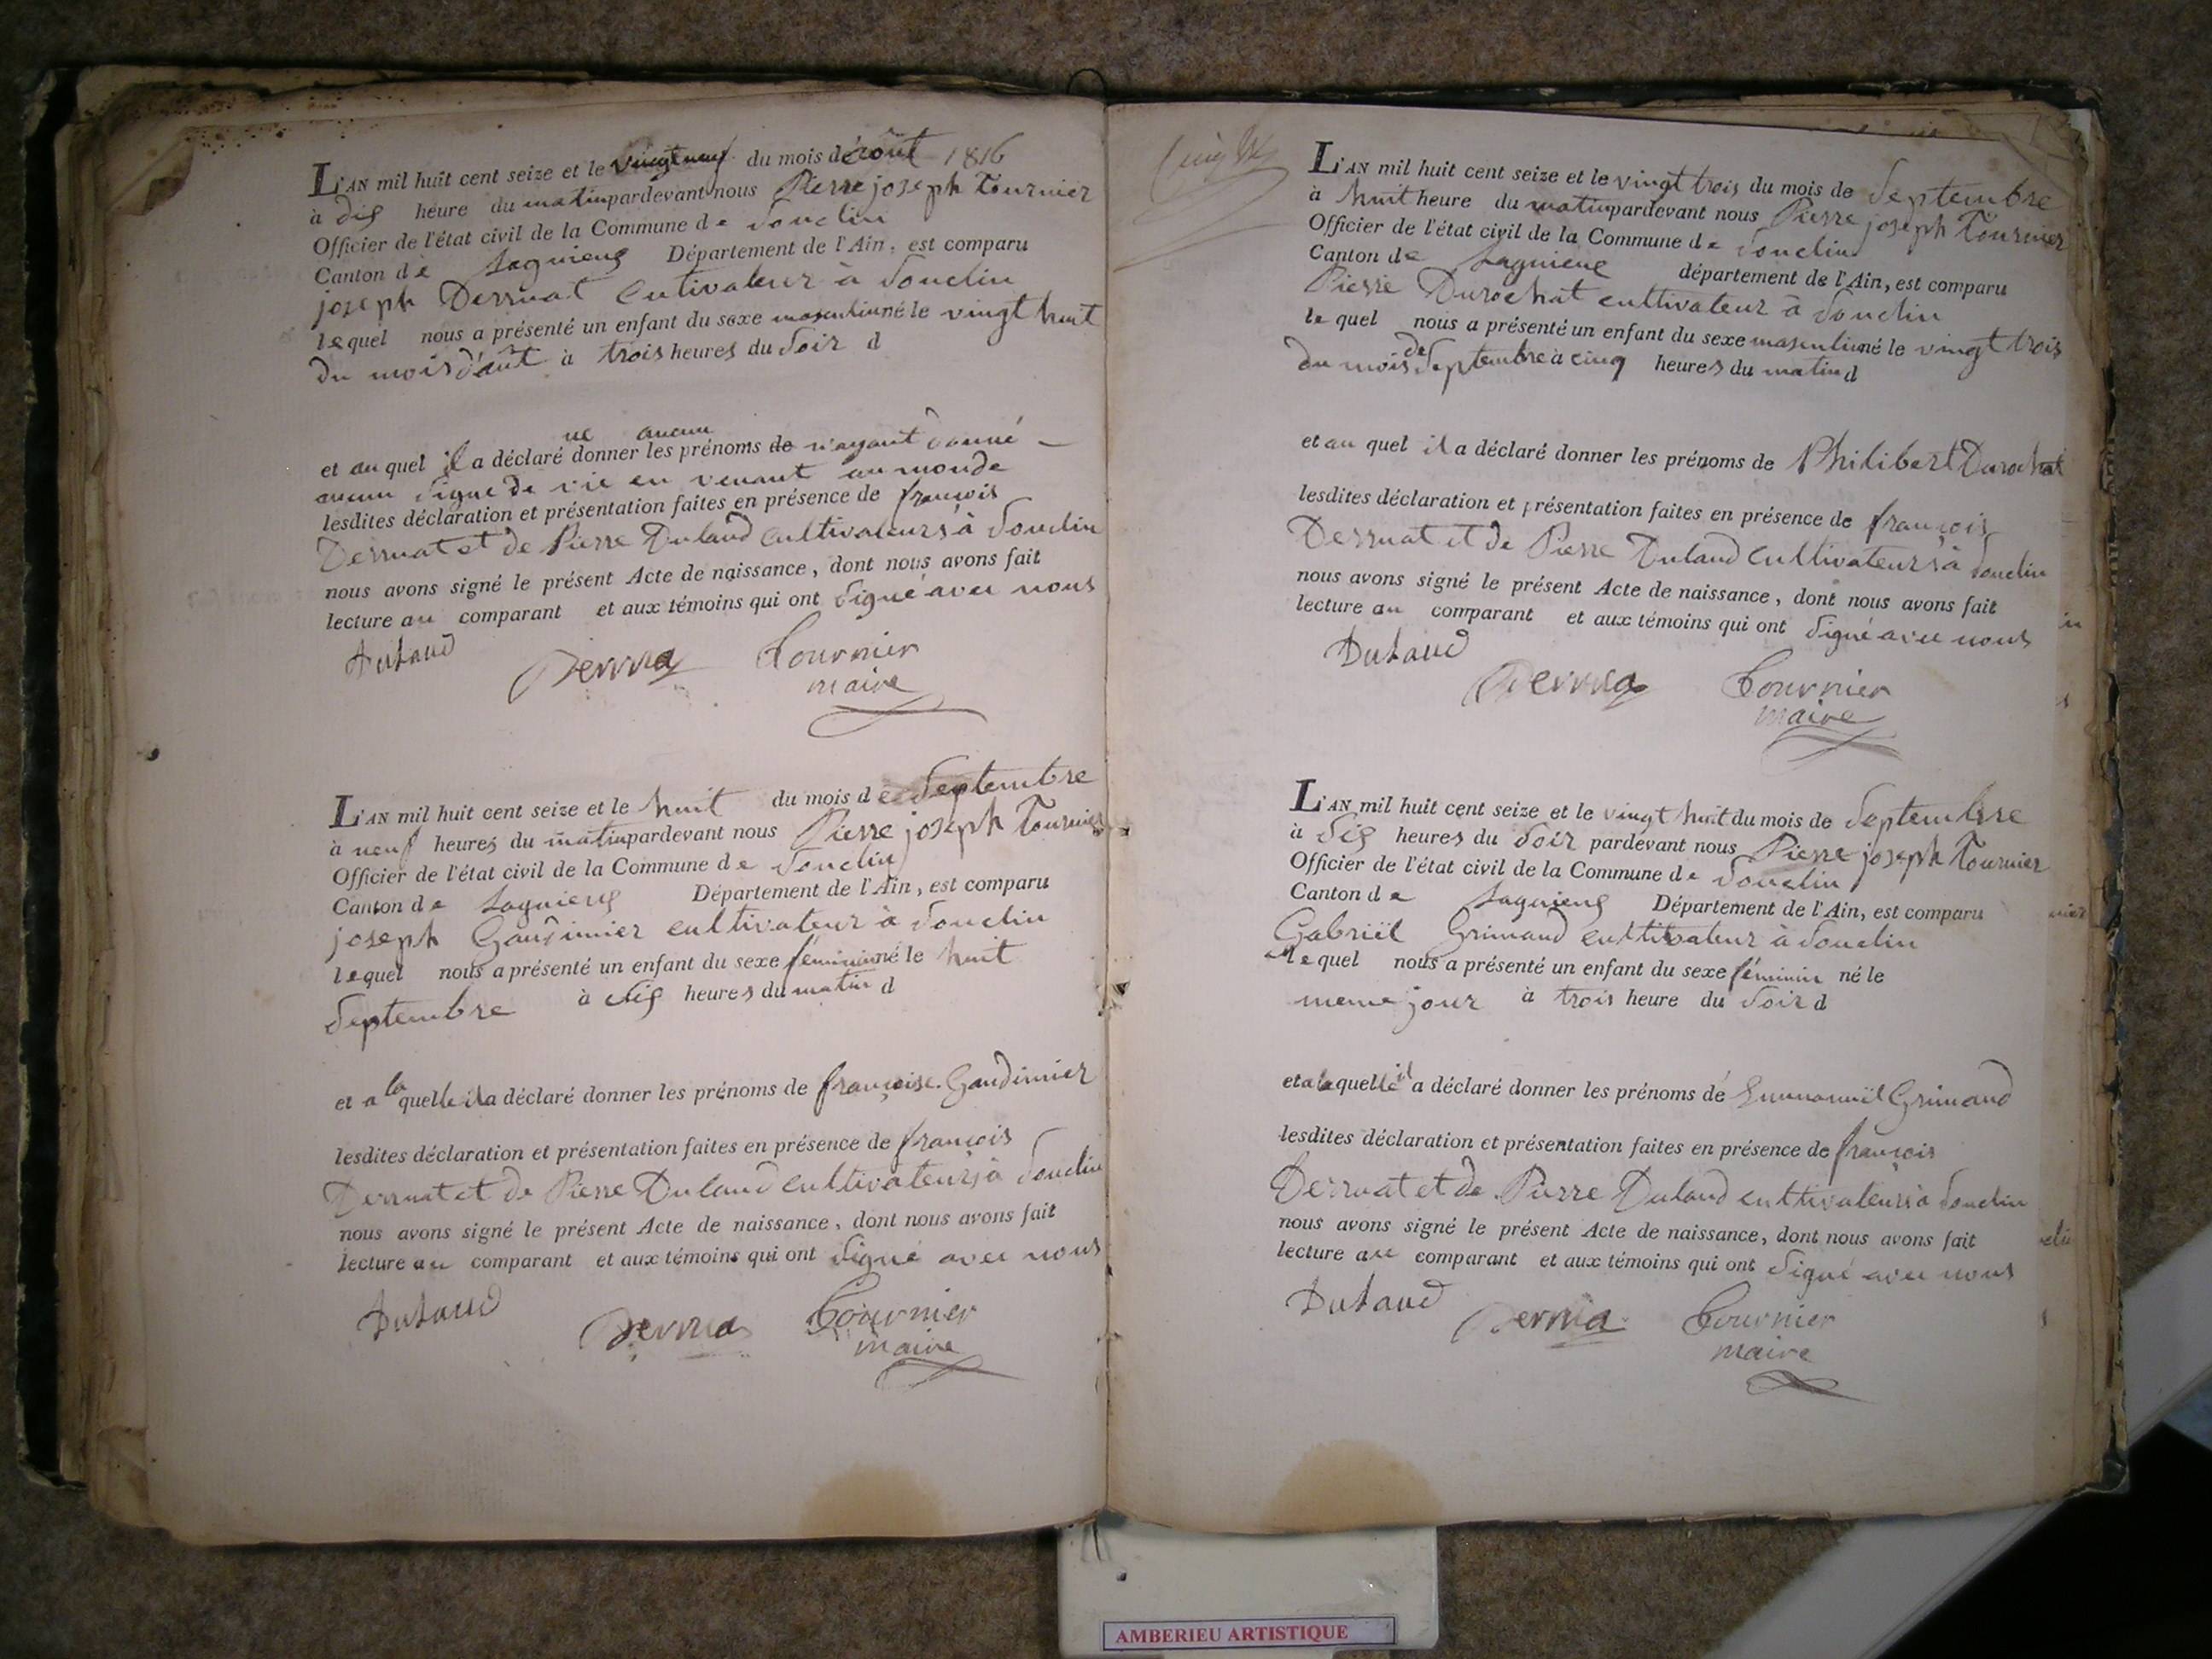 L'AN mil huit cent seize et le vingt neuf du mois d'août 1816
à dis heure du matin pardevant nous Pierre joseph Tournier
Officier de l'état civil de la Commune de Souclin
Canton de Lagnieux Département de l'Ain, est comparu
joseph Derruat cutivateur à Souclin
lequel nous a présenté un enfant du sexe masculin né le vingt huit
du mois d'août à trois heures du Soir d
ne aucun
et au quel il a déclaré donner les prénoms de n'ayant donné
aucun Signe de vie en venant au monde
lesdites déclaration et présentation faites en présence de françois
Derruat et de Pierre Dutaud cultivateurs à Souclin
nous avons signé le présent Acte de naissance, dont nous avons fait
lecture au comparant et aux témoins qui ont Signé avec nous
Dutaud Derrua Tournier
maire
L'AN mil huit cent seize et le huit du mois de Septembre
à neuf heures du matin pardevant nous Pierre joseph Tournier
Officier de l'état civil de la Commune de Souclin
Canton de Lagnieux Département de l'Ain, est comparu
joseph Gaudinier cultivateur à Souclin
lequel nous a présenté un enfant du sexe féminin né le huit
Septembre à dis heures du matin d
et a la quelle il a déclaré donner les prénoms de françoise Gaudinier
lesdites déclaration et présentation faites en présence de françois
Derruat et de Pierre Dutaud cultivateurs à Souclin
nous avons signé le présent Acte de naissance, dont nous avons fait
lecture au comparant et aux témoins qui ont Signé avec nous
Dutaud Derrua Tournier
maire
L'AN mil huit cent seize et le vingt trois du mois de Septembre
à huit heure du matin pardevant nous Pierre joseph Tournier
Officier de l'état civil de la Commune de Souclin
Canton de Lagnieux département de l'Ain, est comparu
Pierre Durochat cultivateur à Souclin
le quel nous a présenté un enfant du sexe masculin né le vingt trois
du mois de Septembre à cinq heures du matin d
et au quel il a déclaré donner les prénoms de Philibert Durochat
lesdites déclaration et présentation faites en présence de françois
Derruat et de Pierre Dutaud cultivateurs à Souclin
nous avons signé le présent Acte de naissance, dont nous avons fait
lecture au comparant et aux témoins qui ont Signé avec nous
Dutaud Derrua Tournier
maire
L'AN mil huit cent seize et le vingt huit du mois de Septembre
à Sis heures du Soir pardevant nous Pierre joseph Tournier
Officier de l'état civil de la Commune de Souclin
Canton de Lagnieux Département de l'Ain, est comparu
Gabriël Grimaud cultivateur à Souclin
le quel nous a présenté un enfant du sexe féminin né le
meme jour à trois heure du Soir d
et a la quelle il a déclaré donner les prénoms de Emmanuël Grimaud
lesdites déclaration et présentation faites en présence de françois
Derruat et de Pierre Dutaud cultivateurs à Souclin
nous avons signé le présent Acte de naissance, dont nous avons fait
lecture au comparant et aux témoins qui ont Signé avec nous
Dutaud Derrua Tournier
maire
AMBERIEU ARTISTIQUE